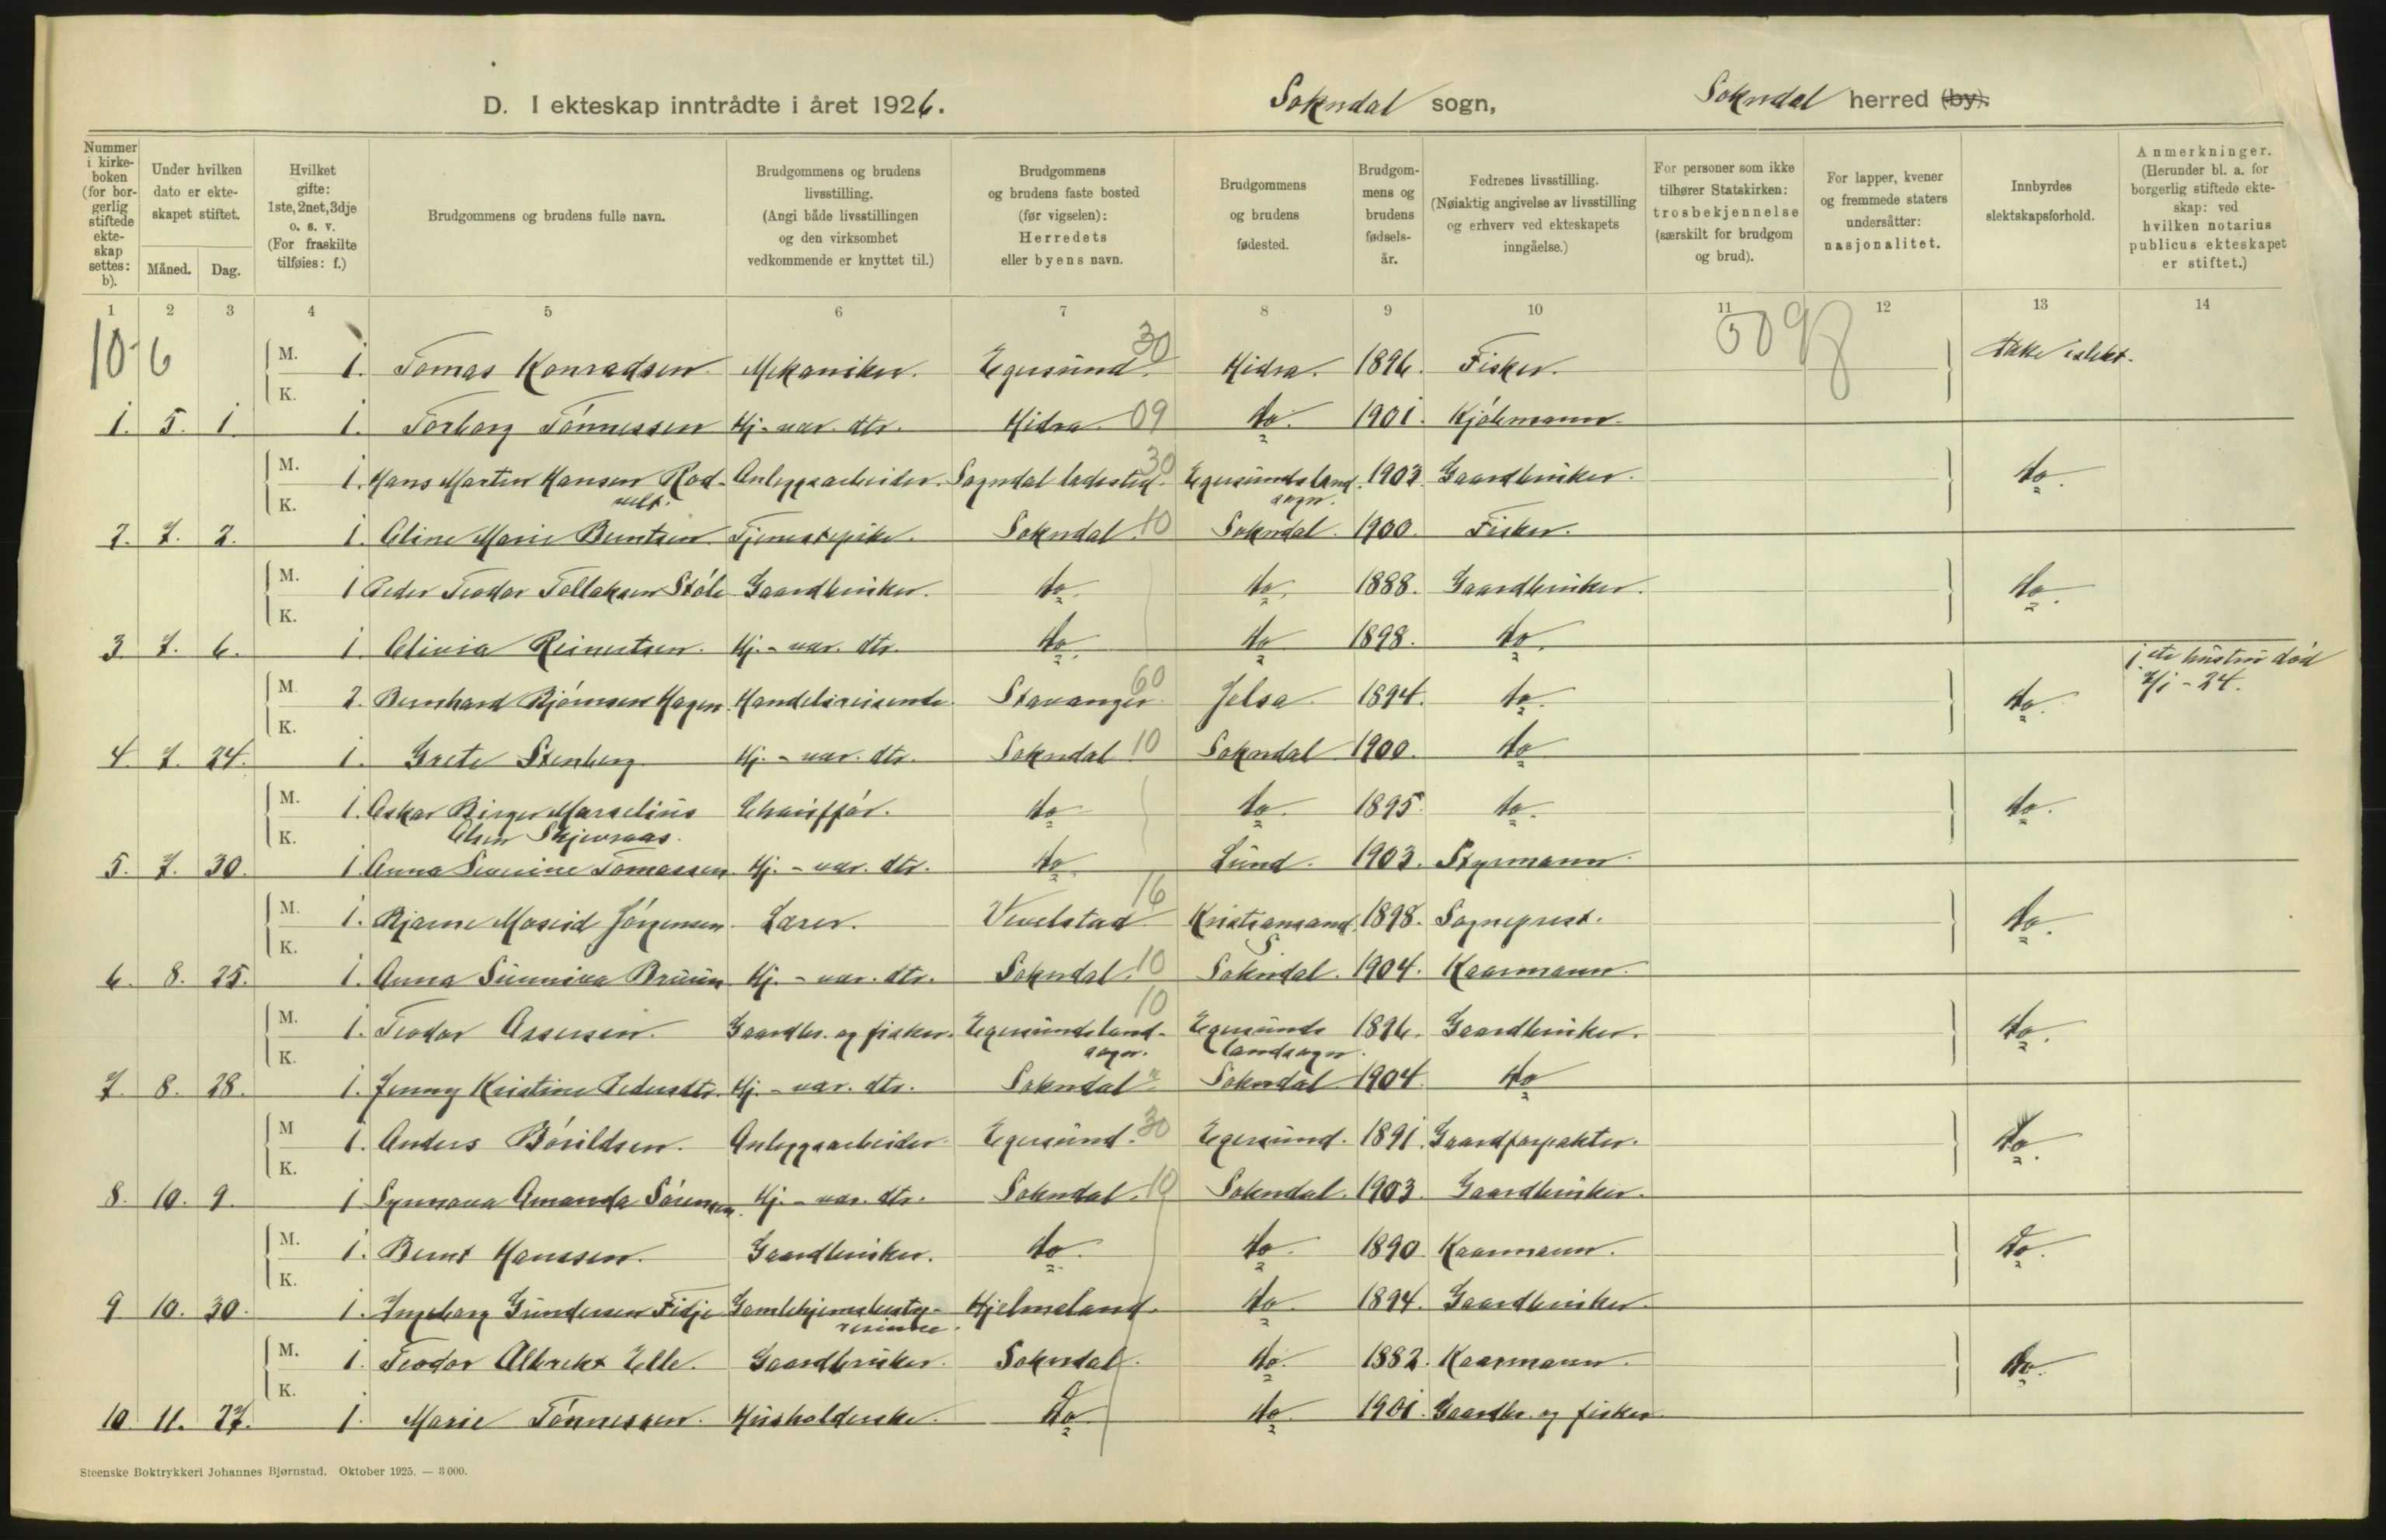 D. I ekteskap inntrådte i året 1926. Sokndal sogn, Sokndal herred (by).
Nummer i kirke-boken (for bor-gerlig stiftede ekte-skap settes: b).
Under hvilken dato er ekte-skapet stiftet.
Måned. Dag.
Hvilket gifte: 1ste, 2net, 3dje o. s. v. (For fraskilte tilføies: f.)
Brudgommens og brudens fulle navn.
Brudgommens og brudens livsstilling. (Angi både livsstillingen og den virksomhet vedkommende er knyttet til.)
Brudgommens og brudens faste bosted (før vigselen): Herredets eller byens navn.
Brudgommens og brudens fødested.
Brudgom-mens og brudens fødsels-år.
Fedrenes livsstilling. (Nøiaktig angivelse av livsstilling og erhverv ved ekteskapets inngåelse.)
For personer som ikke tilhører Statskirken: trosbekjennelse (særskilt for brudgom og brud).
For lapper, kvener og fremmede staters undersåtter: nasjonalitet.
Innbyrdes slektskapsforhold.
Anmerkninger. (Herunder bl. a. for borgerlig stiftede ekte-skap: ved hvilken notarius publicus ekteskapet er stiftet.)
1 2 3 4 5 6 7 8 9 10 11 12 13 14
10-6 M. 1. Tomas Konradsen. Mekaniker. Egersund. 30 Hidra. 1896. Fisker. Ikke i slekt.
K.
1. 5. 1. 1. Torborg Tönnessen Hj.-vær. dtr. Hidra 09 do. 1901. Kjöbmann.
M. 1. Hans Martin Hansen Rod- Anleggsarbeider. Sogndal ladested. 30 Egersundsland 1903. Gaardbruker. do.
K. sogn.
2. 7. 2. 1. Oline Marie Berntsen. Tjenestepike. Sokndal. 10 Sokndal. 1900. Fisker.
M. 1 Peder Teodor Tollaksen Stöle Gaardbruker. do. do. 1888. Gaardbruker. do.
K.
3. 7. 6. 1. Olivia Reinertsen. Hj.-vær. dtr. do. do 1898. do.
M. 2. Bernhard Björnsen Hagen Handelsreisende. Stavanger 60 Jelsa. 1894. do. do. 1ste hustru död 2/1-24.
K.
4. 7. 24. 1. Grete Stenberg Hj.-vær. dtr. Sokndal 10 Sokndal. 1900. do
M. 1. Oskar Birger Marselius Chaufför. do do. 1895. do. do.
K. Olsen Skjevraas.
5. 7. 30. 1 Anna Severine Tomassen Hj.-vær. dtr. do. Lund. 1903. Styrmann.
M. 1. Bjarne Moseid Jörgensen Lærer. Vevelstad 16 Kristiansand 1898. Sogneprest. do.
K. S
6. 8. 25. 1. Anna Sunniva Bruun Hj.-vær. dtr. Sokndal. 10 Sokndal. 1904. Kaarmann.
M. 1. Teodor Assersen. Gaardbr. og fisker. Egersundsland- 10 Egersunds 1896. Gaardbruker. do.
K. sogn. landsogn.
7. 8. 28. 1. Jenny Kristine Pedersdtr. Hj.-vær. dtr. Sokndal Sokndal 1904. do
M 1. Anders Börildsen. Anleggsarbeider Egersund. 30 Egersund. 1891. Gaardforpakter. do.
K.
8. 10. 9. 1 Synnöva Amanda Sörensen. Hj.-vær. dtr. Sokndal. 10 Sokndal. 1903. Gaardbruker.
M. 1. Bernt Hanssen. Gaardbruker. do. do. 1890. Kaarmann. do.
K.
9 10. 30. 1. Ingeborg Gundersen Fidje Gamlehjemsbesty-resinne. Hjelmeland. do. 1894. Gaardbruker.
M. 1. Teodor Albrekt Elle. Gaardbruker. Sokndal. do. 1882. Kaarmann. do.
K.
10. 11. 27. 1. Marie Tönnessen. Husholderske. do do. 1901. Gaardbr. og fisker.
Steenske Boktrykkeri Johannes Bjørnstad. Oktober 1925. — 3 000.